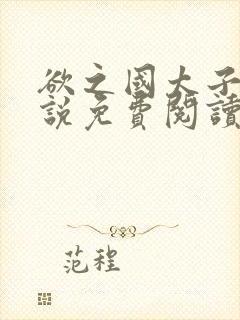 欲之國太子
説免費閱讀
范程